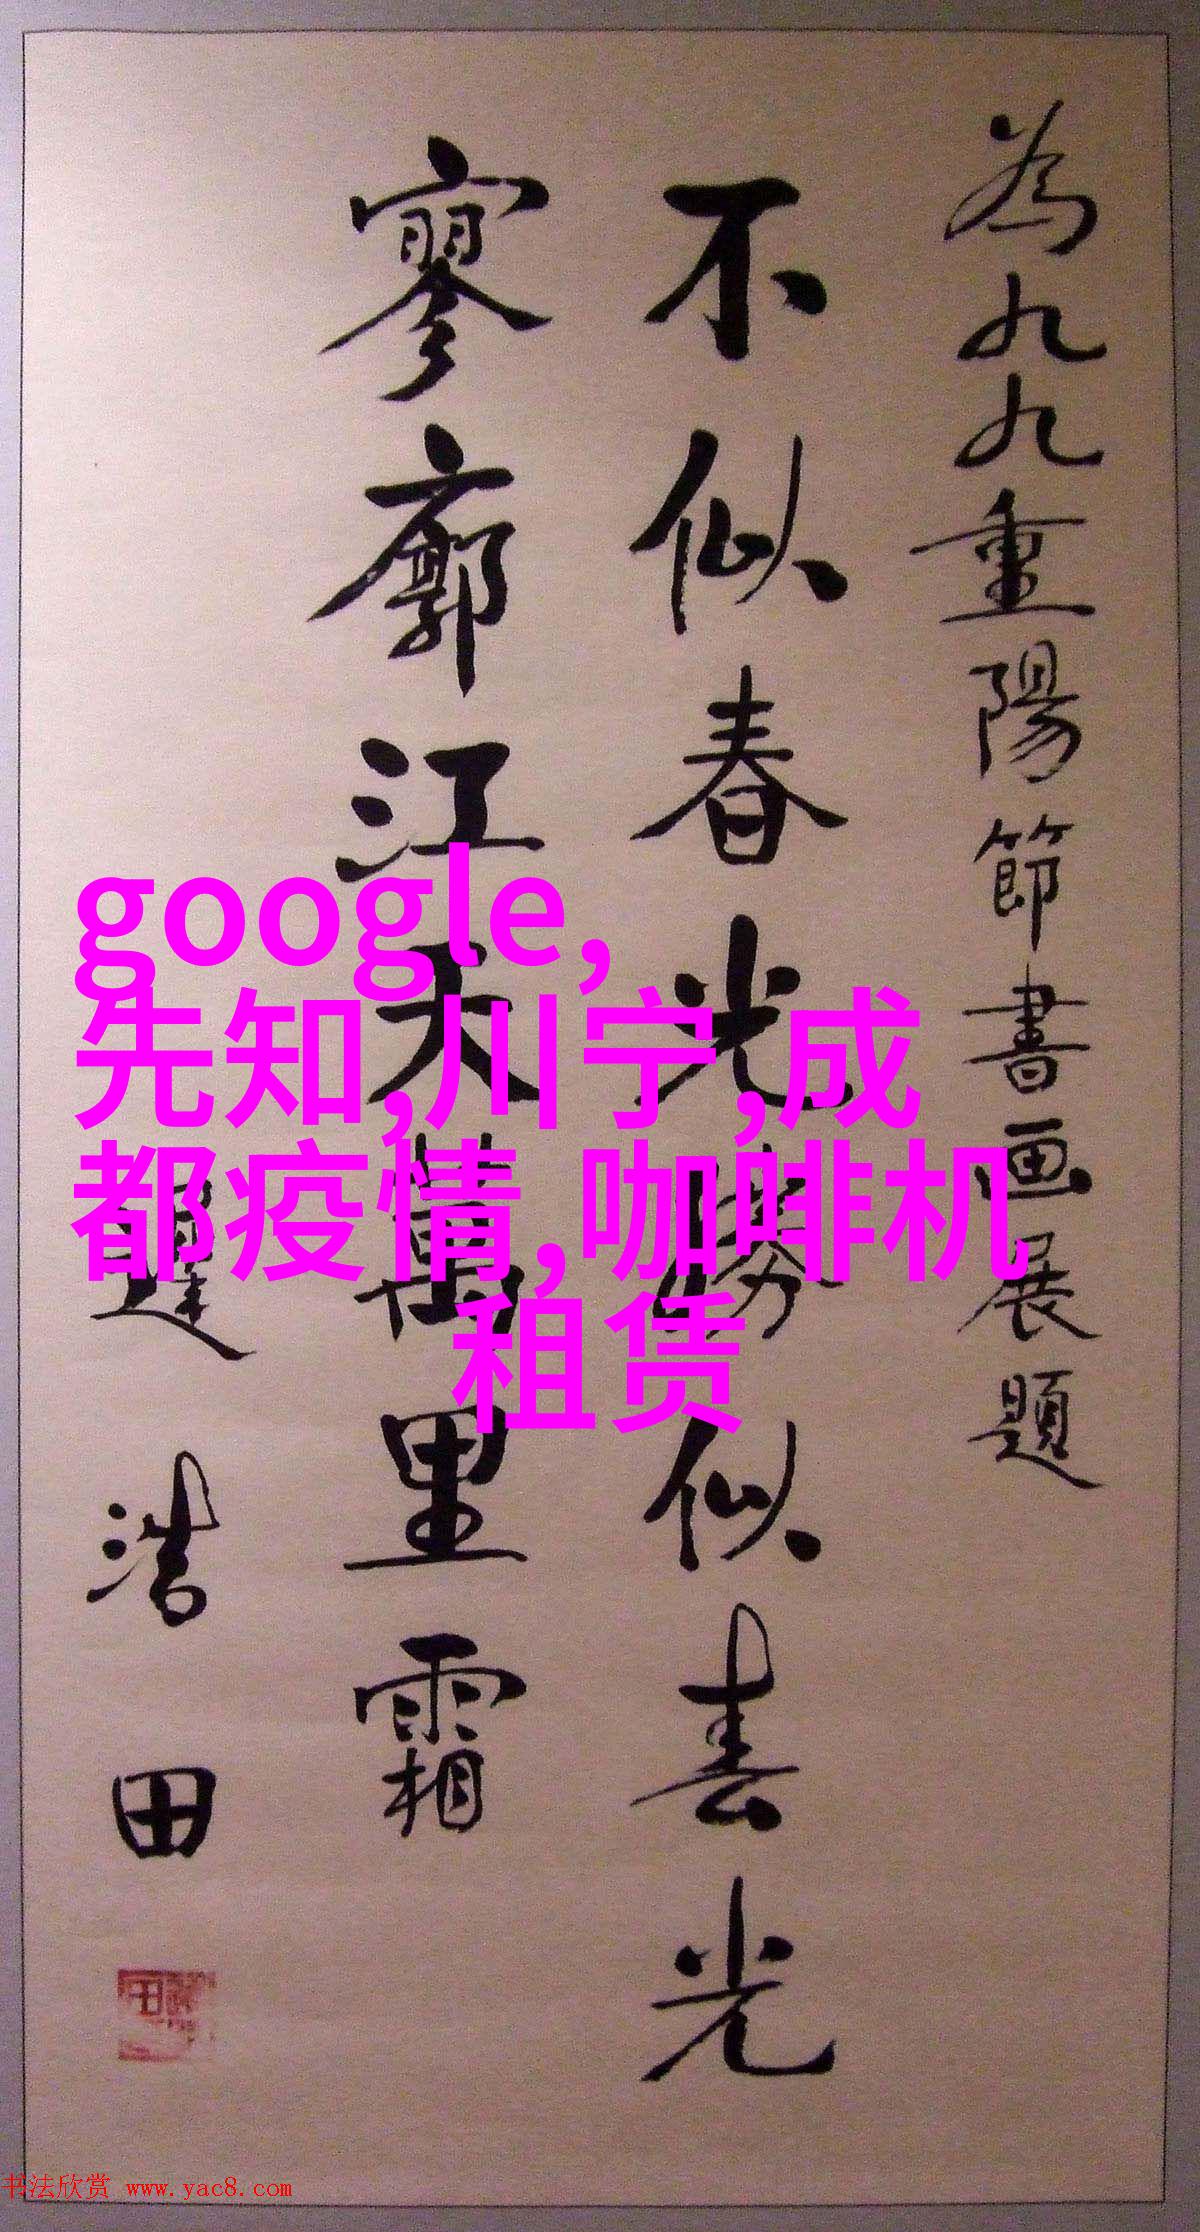 為九九重陽節書画展題
不似春光勝似春光
寥廓江天萬里霜
遲浩田
google,
先知,川宁,成
都疫情,咖啡机
租赁
书法欣赏 www.yac8.com